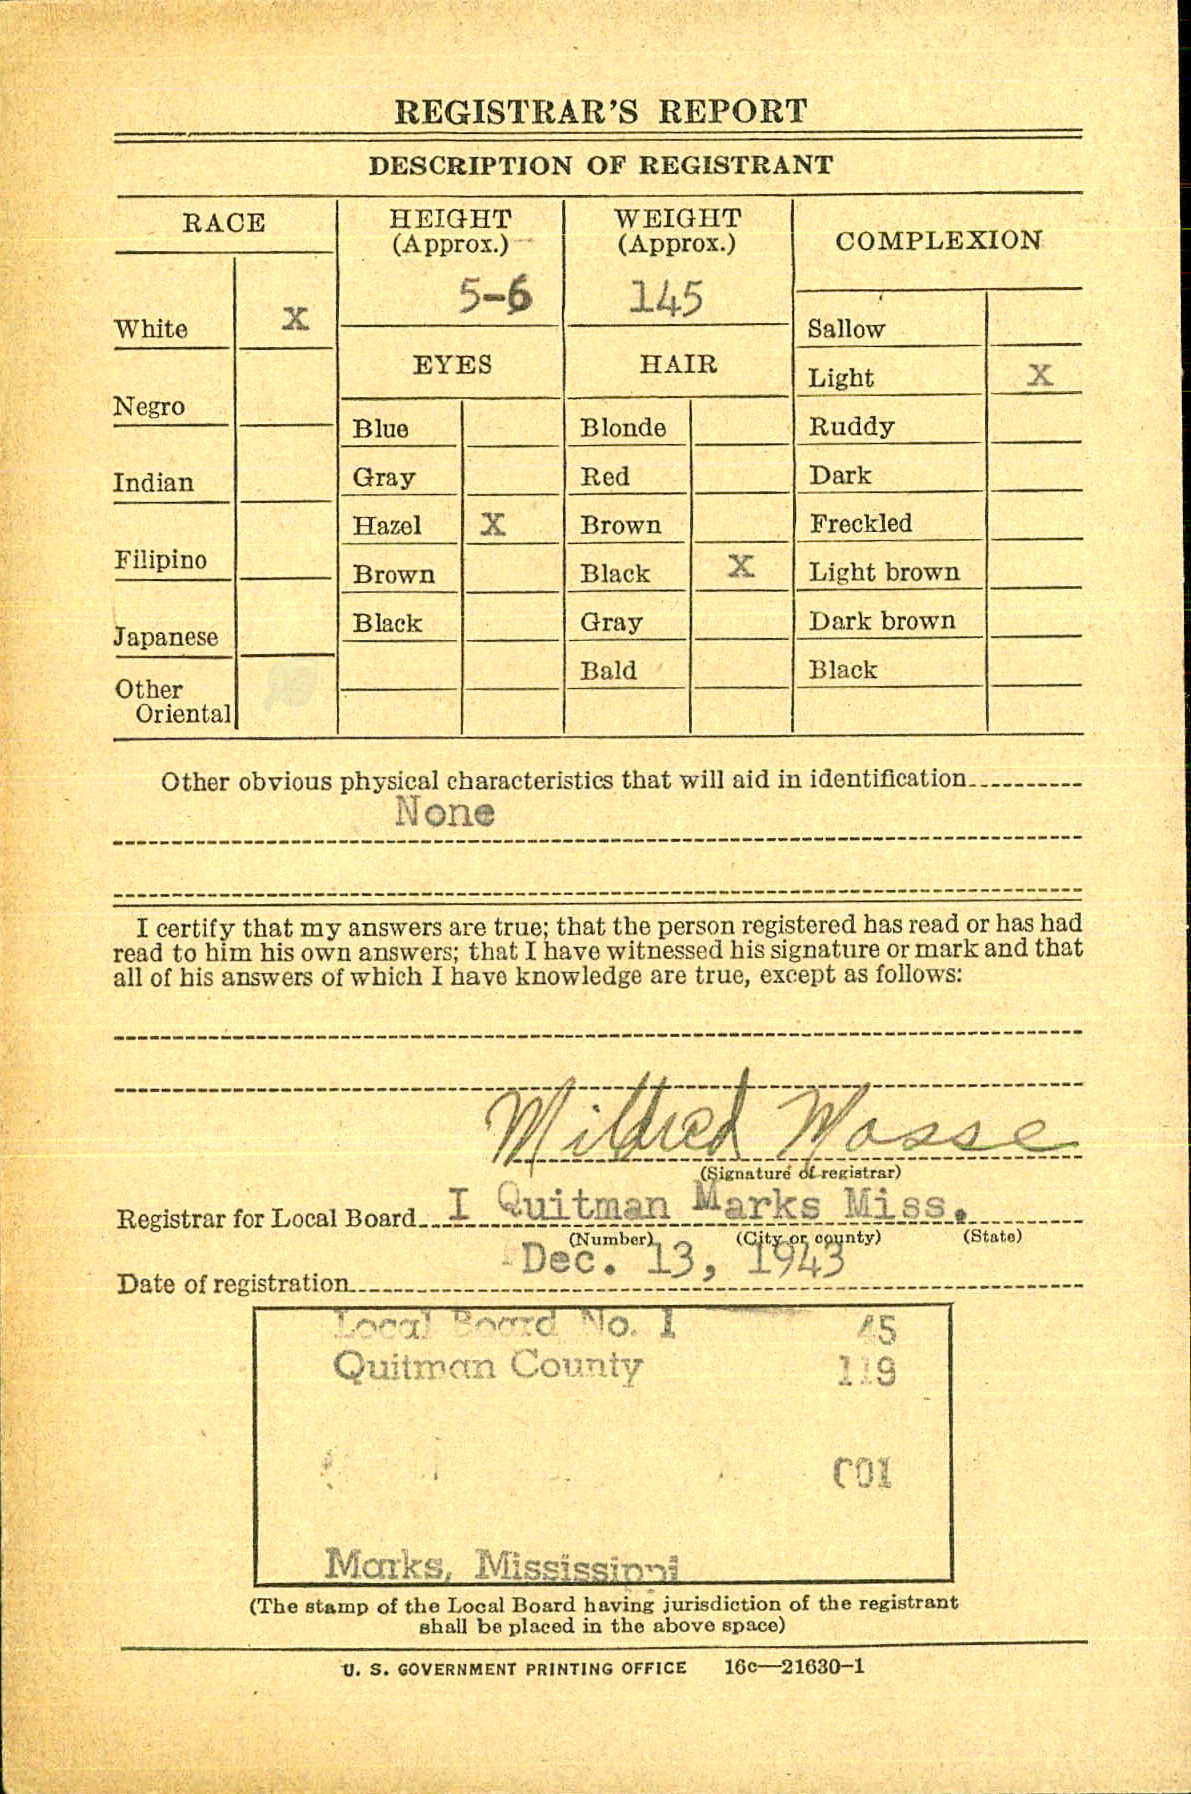 REGISTRAR'S REPORT
DESCRIPTION OF REGISTRANT
RACE
HEIGHT
(Approx.)
WEIGHT
(Approx.)
COMPLEXION
5-6
145
White X
Sallow
EYES
HAIR
Light X
Negro
Blue
Blonde
Ruddy
Indian
Gray
Red
Dark
Hazel X
Brown
Freckled
Filipino
Brown
Black X
Light brown
Japanese
Black
Gray
Dark brown
Bald
Black
Other
Oriental
Other obvious physical characteristics that will aid in identification
None
I certify that my answers are true; that the person registered has read or has had
read to him his own answers; that I have witnessed his signature or mark and that
all of his answers of which I have knowledge are true, except as follows:
Mildred Mosse
(Signature of registrar)
Registrar for Local Board I Quitman Marks Miss.
(Number) (City or county) (State)
Date of registration Dec. 13, 1943
Local Board No. 1 45
Quitman County 119
001
Marks, Mississippi
(The stamp of the Local Board having jurisdiction of the registrant
shall be placed in the above space)
U. S. GOVERNMENT PRINTING OFFICE 16c—21630-1